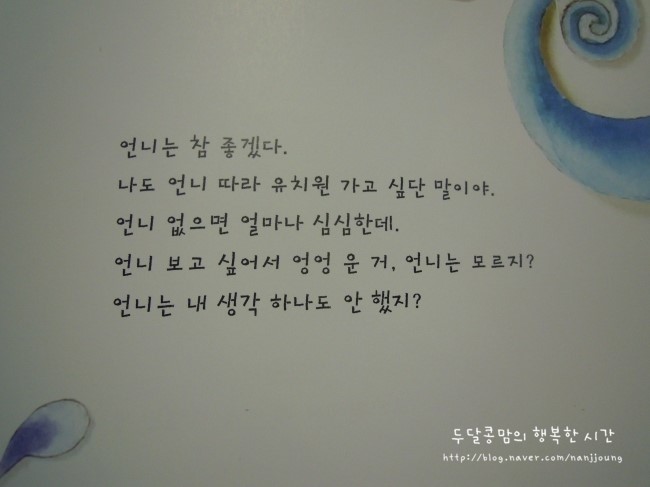 언니는 참 좋겠다.
나도 언니 따라 유치원 가고 싶단 말이야.
언니 없으면 얼마나 심심한데.
언니 보고 싶어서 엉엉 운 거, 언니는 모르지?
언니는 내 생각 하나도 안 했지?
두달콩맘의 행복한 시간
http://blog.naver.com/nanjjoung